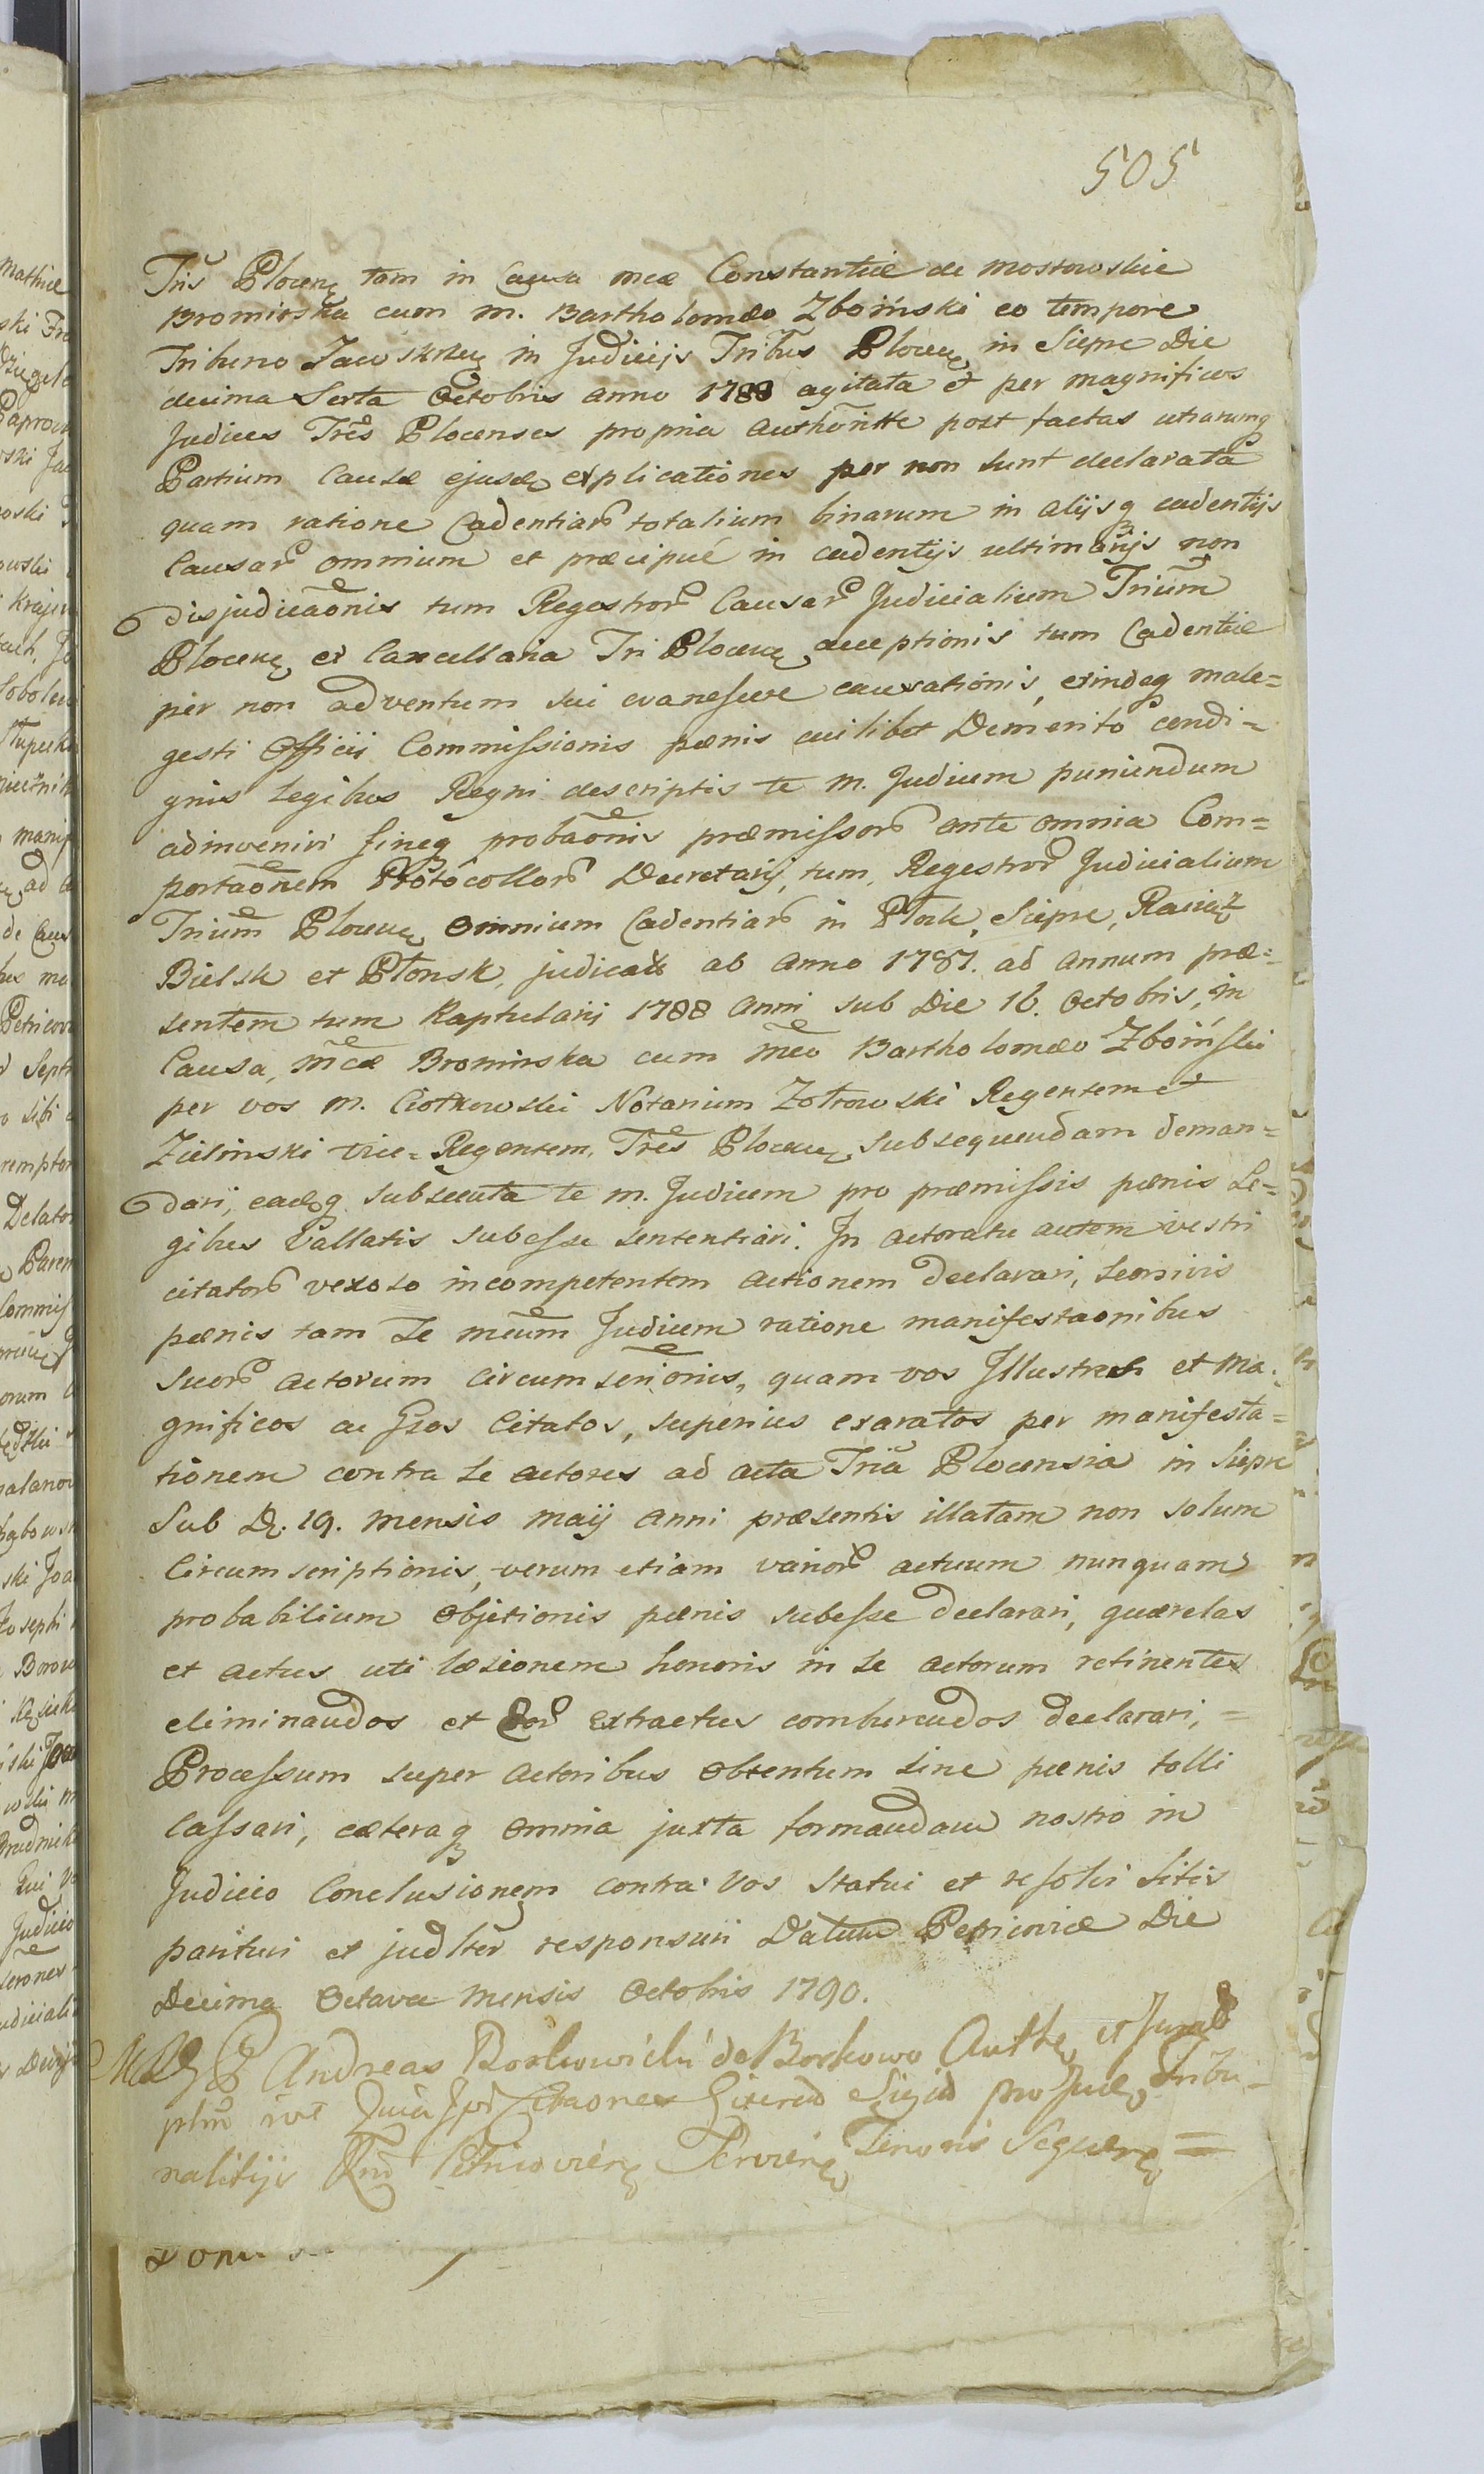 505
Tris Plocen tam in Causa mcæ Constantiæ de Mostowskie
Bromirska cum m. Bartholomæo Zboiński eo tempore
Tribuno Zawskrzen in Judicijs Tribus Plocen in Siepre Die
decima Sexta Octobris anno 1788 agitata et per magnificos
Judices Tres Plocenses propria Authoritte post factas utrarumq
Partium Causæ ejusd explicationes per non sunt declarata
quam ratione Cadentiar totalium binarum in alijsq cadentijs
Causar omnium et præcipué in cadentijs ultimarijs non
disjudicaonis tum Regestror Causar Judicialium Trium
Plocen ex Cancellaria Tri Plocen acceptionis tum Cadentiæ
per non adventum sui evanescere causationis, exindeq male=
gesti Officii Commissionis pænis cuilibet Demerito condi=
gnis Legibus Regni descriptis te m. Judicem puniendum
adinveniri sineq probaonis præmissor ante omnia Com=
portaonem Protocollor Decretarij, tum, Regestror Judicialium
Trium Plocen Omnium Cadentiar in Płock, Siepre, Raciąż
Bielsk et Płonsk, judicatis ab Anno 1787. ad Annum præ=
sentem tum Raptularij 1788 Anni sub Die 16. Octobris, in
Causa, mcæ Bromirska cum mco Bartholomæo Zboiński
per vos m. Ciołkowski Notarium Zołtowski Regentem et
Zielinski vice=Regentem, Tres Plocen subsequendam deman=
dari, eaq subsecuta te m. Judicem pro præmissis pænis Le=
gibus Vallatis subesse sententiari. In actoratu autem vestri
citator vexoso incompetentem Actionem declarari,
pænis tam Te mcum Judicem ratione manifestaonibus
suor Actorum circumscrionis, quam vos Illustres et Ma.
gnificos ac Gsos Citatos, superius exaratos per manifesta=
tionem contra se actores ad acta Tria Plocensia in Siepre
Sub D. 19. Mensis Maij Anni præsentis illatam non solum
Circumscriptionis, verum etiam varior actuum nunquam
probabilium Objectionis pænis subesse declarari, quærelas
et actus uti læsionem honoris in se actorum retinentes
eliminandos et Eor Extractus comburendos declarari,=
Processum super Actoribus Obtentum sine pænis tolli
Cassari, cæteraq Omnia juxta formandam nostro in
Judicio Conclusionem contra Vos Statui et resolvi Sitis
parituri et judlter responsuri Datum Petricoviæ Die
Decima Octava Mensis Octobris 1790.
Andreas Borkowski de Borkowo Auth et Jurat
nalitijs Petricovien Terrien Tenoris Sequen=